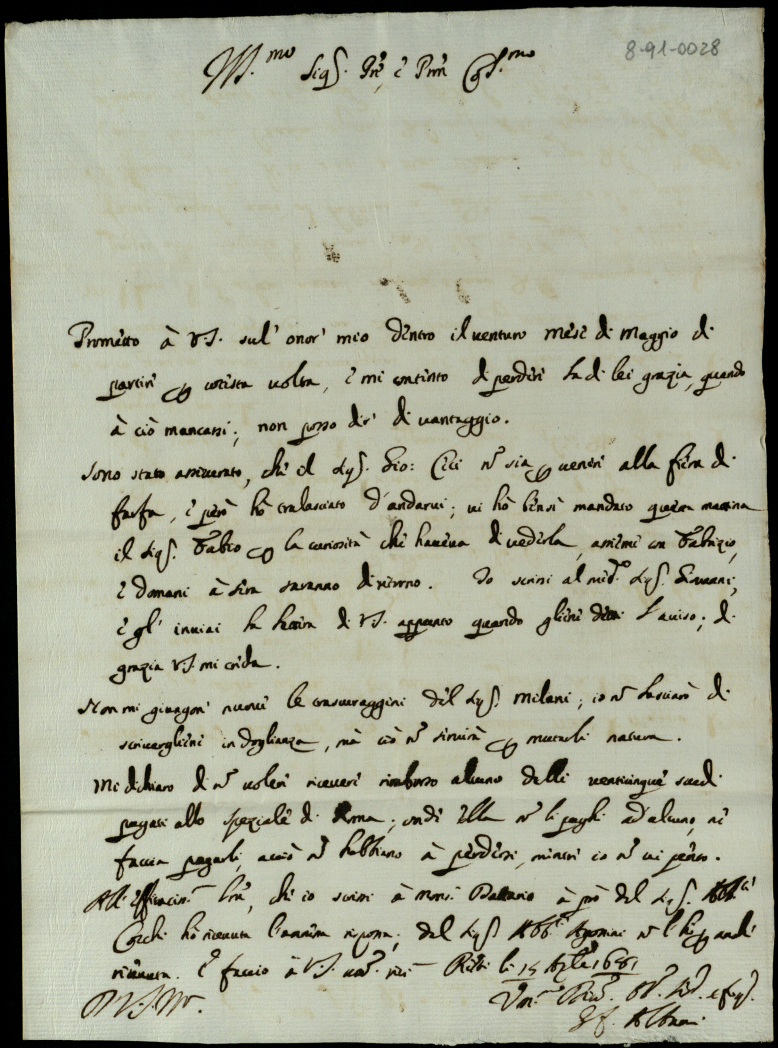 8-91-0028
Ill.mo Sig.r P.rone Col.mo
Prometto à VS. sul' onor' mio dentro il venturo mese di Maggio di
partire p cotesta volta, e mi contento di perdere la di lei grazia, quando
à ciò mancassi; non posso dir' di vantaggio.
Sono stato assicurato, che il Sig.r Gio: Cici nō sia p venire alla fiera di
farfa, e però hò tralasciato d'andarvi; vi hò bensì mandato questa mattina
il Sig.r Fabio p la curiosità che haveva di vederla, assieme con Fabrizio,
e domani à sera saranno di ritorno. Io scrissi al med.o Sig.r Giovanni,
e gl' inviai la lettera di VS. appunto quando gliene diedi l'aviso; di
grazia VS. mi creda.
Non mi giungon' nuove le trascuraggini del Sig.r Milani; io nō lasciarò di
scrivergliene in doglianza, mà ciò nō servirà p mutarli natura.
Mi dichiaro di nō voler' ricevere rimborso alcuno delli venticinque scudi
pagati allo speziale di Roma; onde Ella nō li paghi ad alcuno, ne
faccia pagarli, acciò nō habbiano à perdersi, mentre io nō vi penso.
All' efficacissima che io scrissi à Mons.r Dattario à prò del Sig.r Abb.e
hò ricevuta l'annessa risposta; del Sig.r Abb.e nō l'hò p anche
ricevuta. E faccio à VS. Rieti li 15 Aple 1681
D VS. Ill.ma
Albani